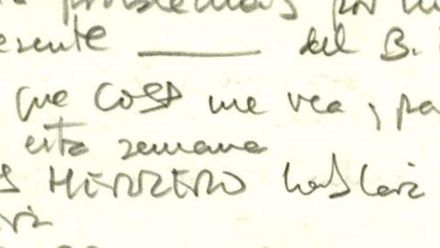 problemas por
esente ______ del B.
que cosa me vea, pa
esta semana
HERRERO hablará